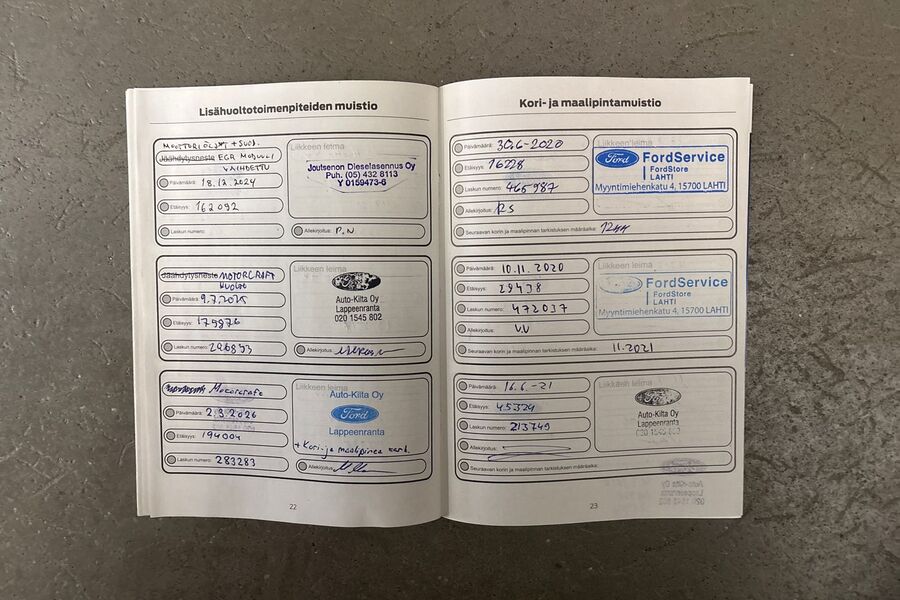 Lisähuoltotoimenpiteiden muistio
MOOTTORIÖLJYT + SUOD.
Jäähdytysneste EGR MODUULI
VAIHDETTU
Päivämäärä: 18.12.2024
Etäisyys: 162092
Laskun numero:
Liikkeen leima
Joutsenon Dieselasennus Oy
Puh. (05) 432 8113
Y 0159473-6
Allekirjoitus: P.N
Jäähdytysneste MOTORCRAFT
Huolto
Päivämäärä: 9.7.2025
Etäisyys: 179876
Laskun numero: 296893
Liikkeen leima
Ford
Auto-Kilta Oy
Lappeenranta
020 1545 802
Allekirjoitus:
Päivämäärä: 2.3.2026
Etäisyys: 194004
Laskun numero: 283283
Liikkeen leima
Auto-Kilta Oy
Ford
Lappeenranta
+ Kori- ja maalipinta tark.
Allekirjoitus:
22
Kori- ja maalipintamuistio
Päivämäärä: 30.6-2020
Etäisyys: 16228
Laskun numero: 465987
Allekirjoitus: RS
Seuraavan korin ja maalipinnan tarkistuksen määräaika: 12kk
Liikkeen leima
Ford FordService
FordStore
LAHTI
Myyntimiehenkatu 4, 15700 LAHTI
Päivämäärä: 10.11.2020
Etäisyys: 29438
Laskun numero: 472037
Allekirjoitus: VV
Seuraavan korin ja maalipinnan tarkistuksen määräaika: 11.2021
Liikkeen leima
FordService
FordStore
LAHTI
Myyntimiehenkatu 4, 15700 LAHTI
Päivämäärä: 16.6.-21
Etäisyys: 45324
Laskun numero: 213749
Allekirjoitus:
Seuraavan korin ja maalipinnan tarkistuksen määräaika:
Liikkeen leima
Ford
Auto-Kilta Oy
Lappeenranta
020 1545 802
23